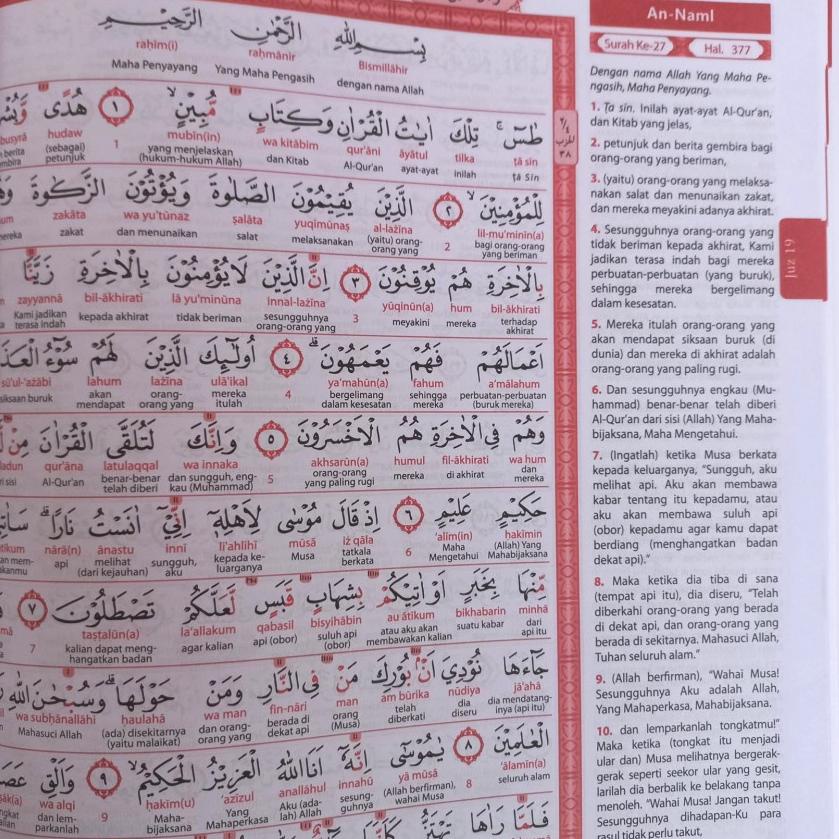 بِسْمِ اللّٰهِ الرَّحْمٰنِ الرَّحِيْمِ
Bismillāhir raḥmānir raḥīm(i)
dengan nama Allah Yang Maha Pengasih Maha Penyayang
طٰسۤ ۚ تِلْكَ اٰيٰتُ الْقُرْاٰنِ وَكِتَابٍ مُّبِيْنٍ ۙ ١ هُدًى
ṭā sīn tilka āyātul qur'āni wa kitābim mubīn(in) hudaw
ṭā Sīn inilah ayat-ayat Al-Qur'an dan Kitab yang menjelaskan (hukum-hukum Allah) 1 (sebagai) petunjuk
لِلْمُؤْمِنِيْنَ ۙ ٢ الَّذِيْنَ يُقِيْمُوْنَ الصَّلٰوةَ وَيُؤْتُوْنَ الزَّكٰوةَ
lil-mu'minīn(a) al-lażīna yuqīmūnaṣ ṣalāta wa yu'tūnaz zakāta
bagi orang-orang yang beriman 2 (yaitu) orang-orang yang melaksanakan salat dan menunaikan zakat
بِالْاٰخِرَةِ هُمْ يُوْقِنُوْنَ ٣ اِنَّ الَّذِيْنَ لَا يُؤْمِنُوْنَ بِالْاٰخِرَةِ زَيَّنَّا
bil-ākhirati hum yūqinūn(a) innal-lażīna lā yu'minūna bil-ākhirati zayyannā
terhadap akhirat mereka meyakini 3 sesungguhnya orang-orang yang tidak beriman kepada akhirat Kami jadikan terasa indah
اَعْمَالَهُمْ فَهُمْ يَعْمَهُوْنَ ۗ ٤ اُولٰۤىِٕكَ الَّذِيْنَ لَهُمْ سُوْۤءُ
a'mālahum fahum ya'mahūn(a) ulā'ikal lażīna lahum sū'ul-'ażābi
perbuatan-perbuatan (buruk mereka) sehingga mereka bergelimang dalam kesesatan 4 mereka itulah orang-orang yang akan mendapat siksaan buruk
وَهُمْ فِى الْاٰخِرَةِ هُمُ الْاَخْسَرُوْنَ ٥ وَاِنَّكَ لَتُلَقَّى الْقُرْاٰنَ مِنْ
wa hum fil-ākhirati humul akhsarūn(a) wa innaka latulaqqal qur'āna
dan mereka di akhirat mereka orang-orang yang paling rugi 5 dan sungguh, engkau (Muhammad) benar-benar telah diberi Al-Qur'an
حَكِيْمٍ عَلِيْمٍ ٦ اِذْ قَالَ مُوْسٰى لِاَهْلِهٖٓ اِنِّيْٓ اٰنَسْتُ نَارًا ۗ
ḥakīmin 'alīm(in) iż qāla mūsā li'ahlihī innī ānastu nārā(n)
(Allah) Yang Mahabijaksana Maha Mengetahui 6 tatkala berkata Musa kepada keluarganya sungguh, aku melihat (dari kejauhan) api
مِّنْهَا بِخَبَرٍ اَوْ اٰتِيْكُمْ بِشِهَابٍ قَبَسٍ لَّعَلَّكُمْ تَصْطَلُوْنَ ٧
minhā bikhabarin au ātīkum bisyihābin qabasil la'allakum taṣṭalūn(a)
dari api itu suatu kabar atau aku akan membawakan kalian suluh api (obor) api (obor) agar kalian kalian dapat menghangatkan badan 7
جَاۤءَهَا نُوْدِيَ اَنْۢ بُوْرِكَ مَنْ فِى النَّارِ وَمَنْ حَوْلَهَا ۗ وَسُبْحٰنَ اللّٰهِ
jā'ahā nūdiya am būrika man fin-nāri wa man ḥaulahā wa subḥānallāhi
dia mendatanginya (api itu) dia diseru telah diberkati orang (Musa) berada di dekat api dan orang-orang yang (ada) disekitarnya (yaitu malaikat) Mahasuci Allah
الْعٰلَمِيْنَ ٨ يٰمُوْسٰٓى اِنَّهٗٓ اَنَا اللّٰهُ الْعَزِيْزُ الْحَكِيْمُ ۙ ٩ وَاَلْقِ
'ālamīn(a) yā mūsā innahū anallāhul 'azīzul ḥakīm(u) wa alqi
seluruh alam 8 (Allah berfirman), wahai Musa sesungguhnya Aku (adalah) Allah Yang Mahaperkasa Mahabijaksana 9 dan lemparkanlah
فَلَمَّا رَاٰهَا تَهْتَزُّ
An-Naml
Surah Ke-27 Hal. 377
Dengan nama Allah Yang Maha Pe-
ngasih, Maha Penyayang.
1. Ṭā sīn. Inilah ayat-ayat Al-Qur'an,
dan Kitab yang jelas,
2. petunjuk dan berita gembira bagi
orang-orang yang beriman,
3. (yaitu) orang-orang yang melaksa-
nakan salat dan menunaikan zakat,
dan mereka meyakini adanya akhirat.
4. Sesungguhnya orang-orang yang
tidak beriman kepada akhirat, Kami
jadikan terasa indah bagi mereka
perbuatan-perbuatan (yang buruk),
sehingga mereka bergelimang
dalam kesesatan.
5. Mereka itulah orang-orang yang
akan mendapat siksaan buruk (di
dunia) dan mereka di akhirat adalah
orang-orang yang paling rugi.
6. Dan sesungguhnya engkau (Mu-
hammad) benar-benar telah diberi
Al-Qur'an dari sisi (Allah) Yang Maha-
bijaksana, Maha Mengetahui.
7. (Ingatlah) ketika Musa berkata
kepada keluarganya, "Sungguh, aku
melihat api. Aku akan membawa
kabar tentang itu kepadamu, atau
aku akan membawa suluh api
(obor) kepadamu agar kamu dapat
berdiang (menghangatkan badan
dekat api)."
8. Maka ketika dia tiba di sana
(tempat api itu), dia diseru, "Telah
diberkahi orang-orang yang berada
di dekat api, dan orang-orang yang
berada di sekitarnya. Mahasuci Allah,
Tuhan seluruh alam."
9. (Allah berfirman), "Wahai Musa!
Sesungguhnya Aku adalah Allah,
Yang Mahaperkasa, Mahabijaksana.
10. dan lemparkanlah tongkatmu!"
Maka ketika (tongkat itu menjadi
ular dan) Musa melihatnya bergerak-
gerak seperti seekor ular yang gesit,
larilah dia berbalik ke belakang tanpa
menoleh. "Wahai Musa! Jangan takut!
Sesungguhnya di hadapan-Ku para
rasul tidak perlu takut,
Juz 19